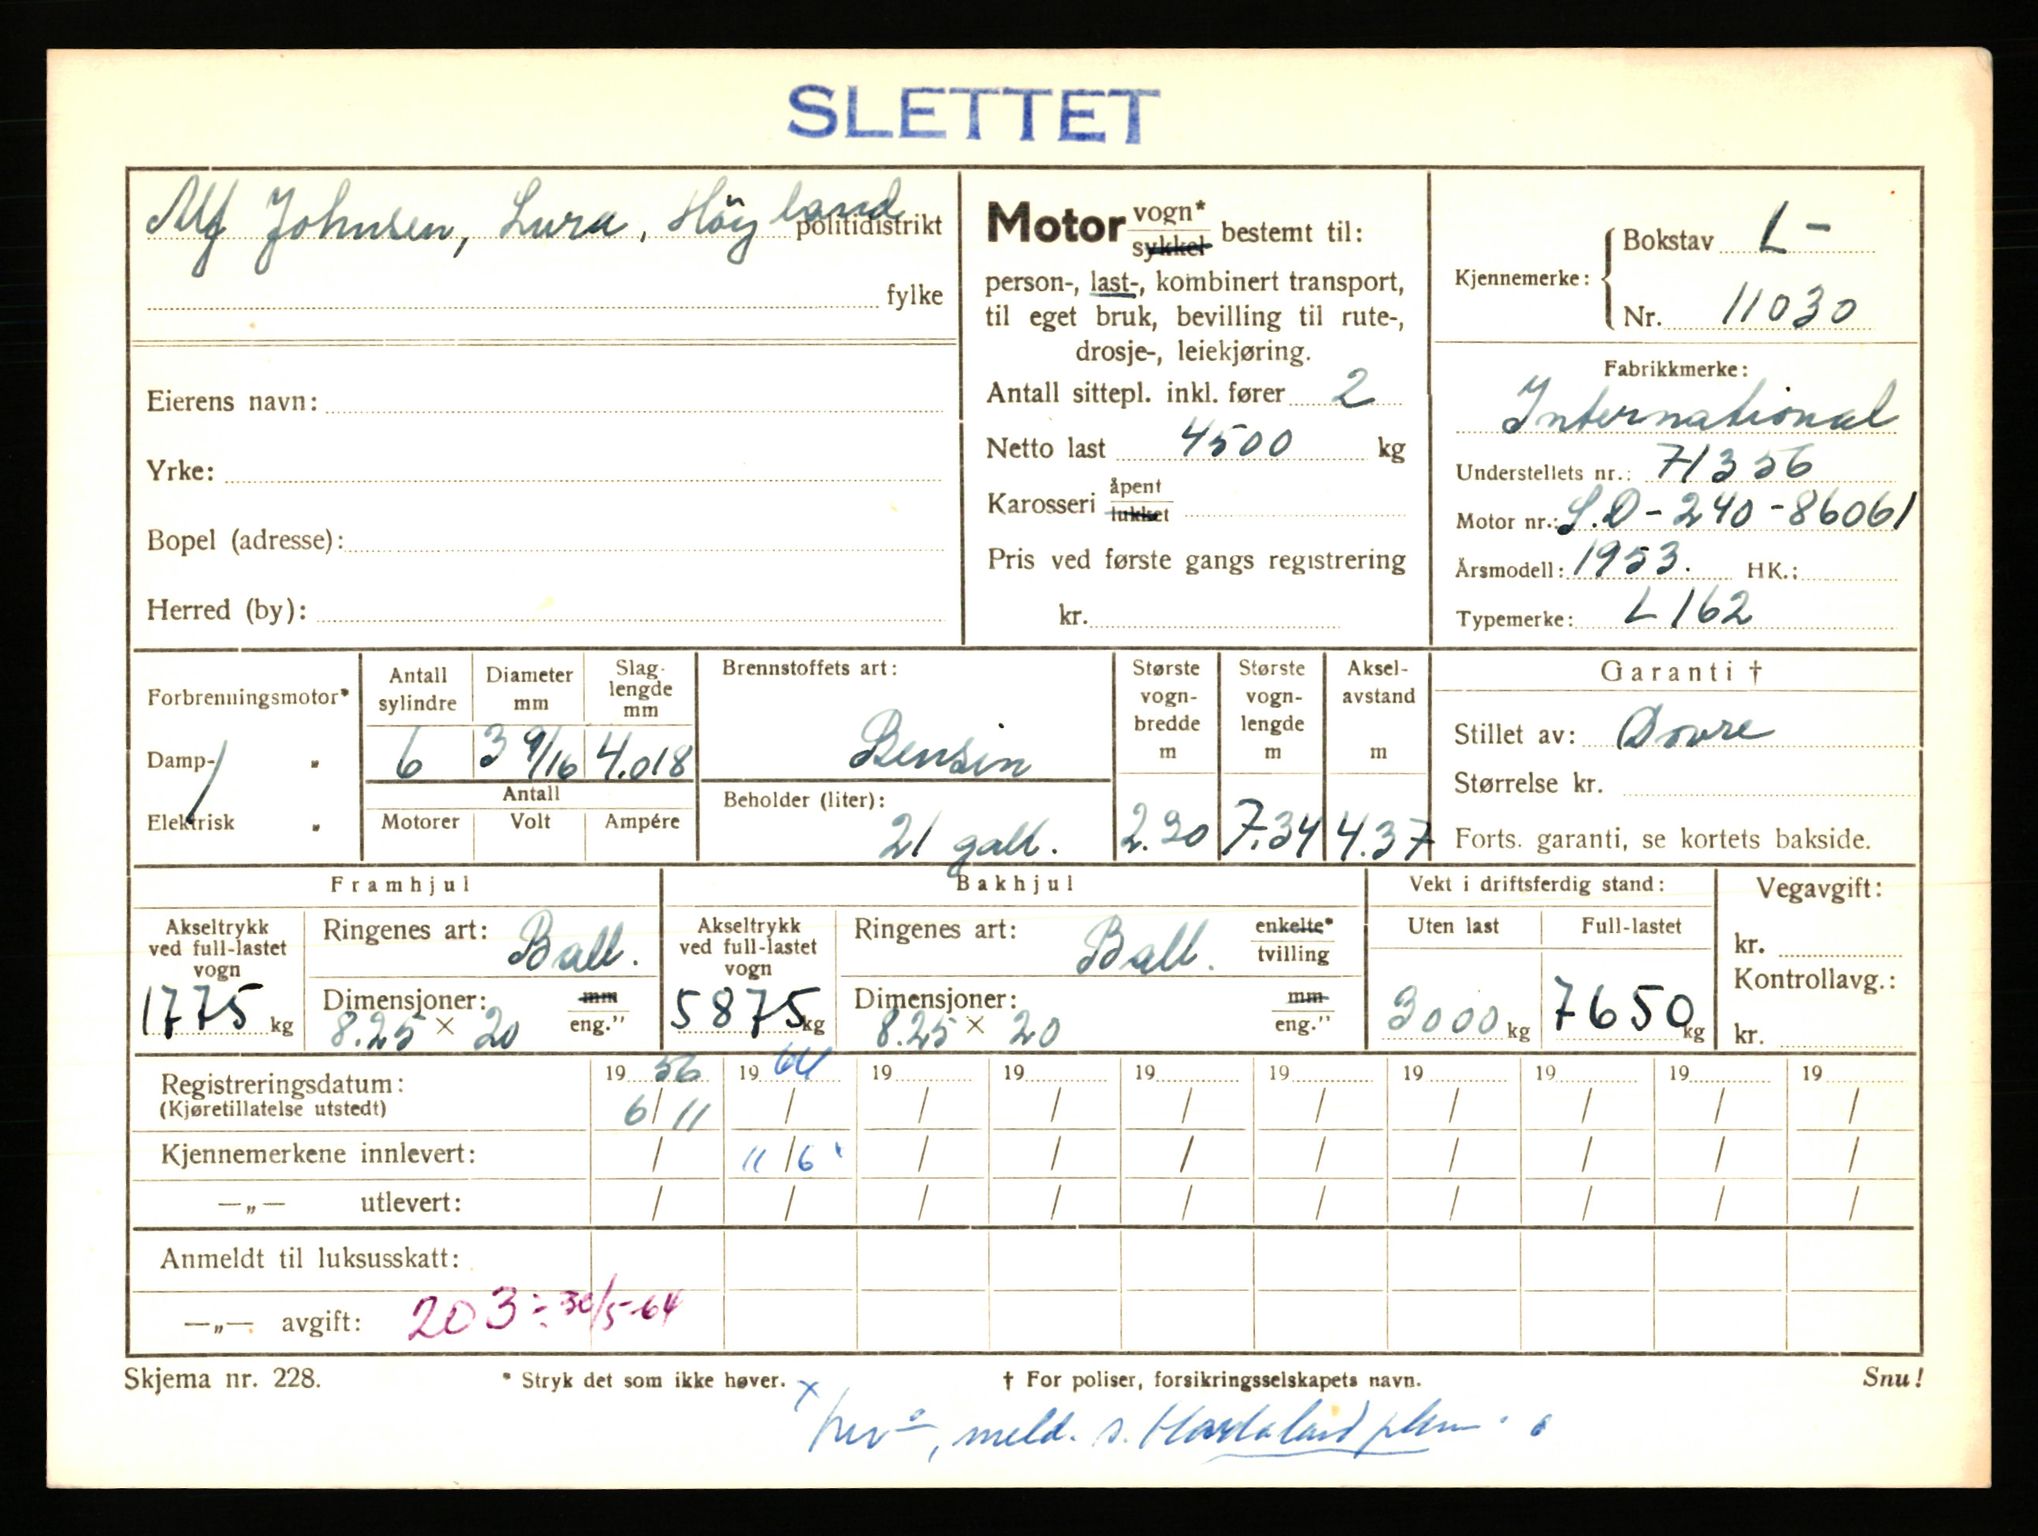 SLETTET
Alf Johnsen, Lura, Höyland politidistrikt
fylke
Eierens navn:
Yrke:
Bopel (adresse):
Herred (by):
Motor vogn*
sykkel bestemt til:
person-, last-, kombinert transport,
til eget bruk, bevilling til rute-,
drosje-, leiekjøring.
Antall sittepl. inkl. fører 2
Netto last 4500 kg
Karosseri åpent
lukket
Pris ved første gangs registrering
kr.
Kjennemerke: Bokstav L-
Nr. 11030
Fabrikkmerke:
International
Understellets nr.: 71356
Motor nr.: S.D-240-86061
Årsmodell: 1953. HK.:
Typemerke: L 162
Forbrenningsmotor*
Damp- „
Elektrisk „
Antall sylindre
6
Diameter mm
3 9/16
Slag-lengde mm
4.018
Antall
Motorer Volt Ampére
Brennstoffets art:
Bensin
Beholder (liter):
21 gall.
Største vogn-bredde m
2.20
Største vogn-lengde m
7.34
Aksel-avstand m
4.37
Garanti †
Stillet av: Dovre
Størrelse kr.
Forts. garanti, se kortets bakside.
Framhjul
Akseltrykk ved full-lastet vogn
1775 kg
Ringenes art: Ball.
Dimensjoner: mm
8.25 × 20 eng."
Bakhjul
Akseltrykk ved full-lastet vogn
5875 kg
Ringenes art: Ball. enkelte*
tvilling
Dimensjoner: mm
8.25 × 20 eng."
Vekt i driftsferdig stand:
Uten last Full-lastet
3000 kg 7650 kg
Vegavgift:
kr.
Kontrollavg.:
kr.
Registreringsdatum: 19 56 19 64 19 19 19 19 19 19 19 19
(Kjøretillatelse utstedt) 6/11 / / / / / / / / /
Kjennemerkene innlevert: / 11/6 / / / / / / / /
—„— utlevert: / / / / / / / / / /
Anmeldt til luksusskatt:
—„— avgift: 203 ÷ 30/5-64
Skjema nr. 228. * Stryk det som ikke høver. † For poliser, forsikringsselskapets navn. Snu!
x
meld. s. Hordaland